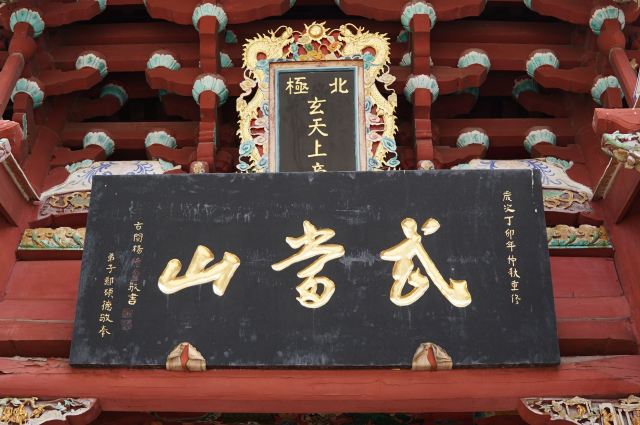 北極
玄天上帝
歲次丁卯年仲秋重修
武當山
古閩楊敬書
弟子鄭德敬奉